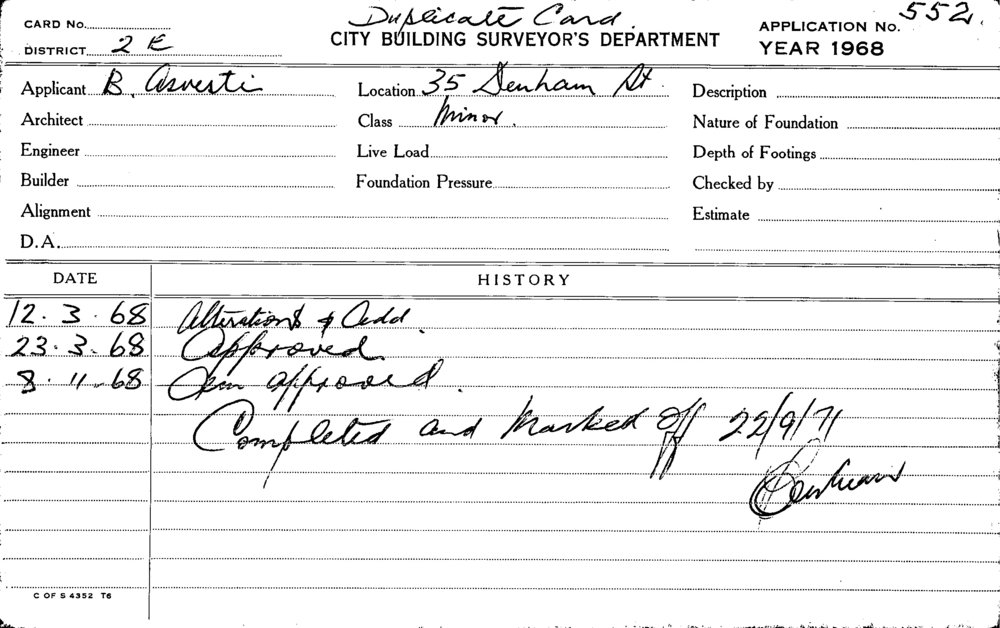 Duplicate Card.
CARD No.
CITY BUILDING SURVEYOR'S DEPARTMENT
APPLICATION No. 552.
DISTRICT 2 E
YEAR 1968
Applicant B. Asvesti
Location 35 Denham St.
Description
Architect
Class Minor.
Nature of Foundation
Engineer
Live Load
Depth of Footings
Builder
Foundation Pressure
Checked by
Alignment
Estimate
D.A.
DATE
HISTORY
12.3.68 Alterations & Add.
23.3.68 Approved.
8.11.68 approved.
Completed and Marked off 22/9/71
C OF S 4352 T6